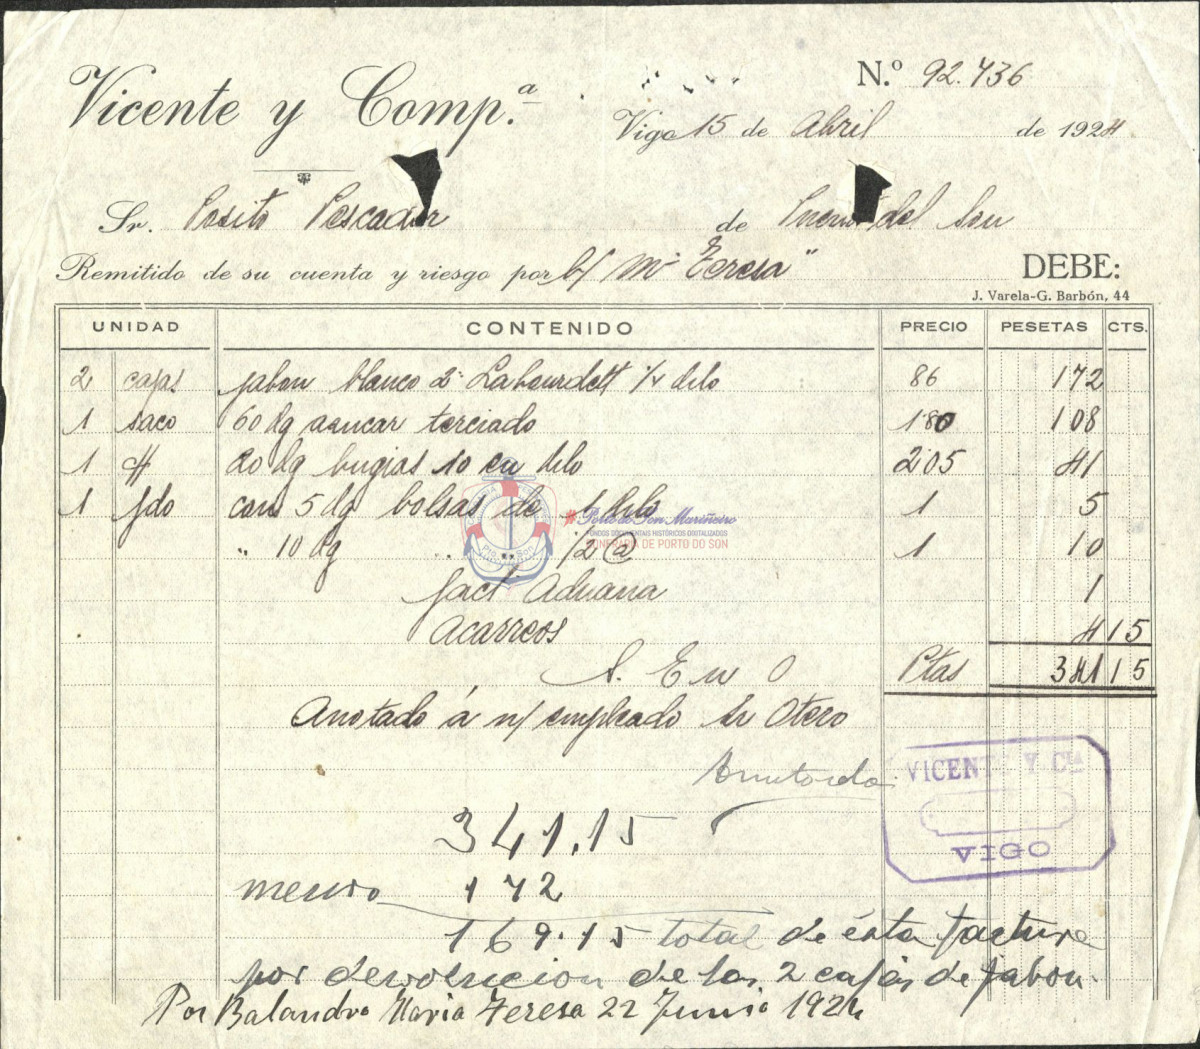 Vicente y Comp.ª
N.º 92.736
Vigo 15 de Abril de 1924
Sr. Posito Pescador de Puerto del Son
Remitido de su cuenta y riesgo por b/ Mª Teresa" DEBE:
J. Varela-G. Barbón, 44
UNIDAD CONTENIDO PRECIO PESETAS CTS.
2 cajas jabon blanco 2ª Labourdett 86 172
1 saco 60 kg azucar terciado 180 108
1 20 kg bugias 10 en kilo 205 41
1 fdo con 5 kg bolsas de 1 kilo 1 5
" 10 kg " " 1/2 @ 1 10
fact Aduana 1
Acarreos 4 15
S. E u O Ptas 341 15
Anotado á n/ empleado Sr Otero
VICENTE Y Cía
VIGO
341,15
menos 172
169.15 total de ésta factura
por devolucion de las 2 cajas de jabon.
Por Balandro Maria Teresa 22 Junio 1924
#Porto do Son Mariñeiro
FONDOS DOCUMENTAIS HISTÓRICOS DIXITALIZADOS
CONFRARÍA DE PORTO DO SON